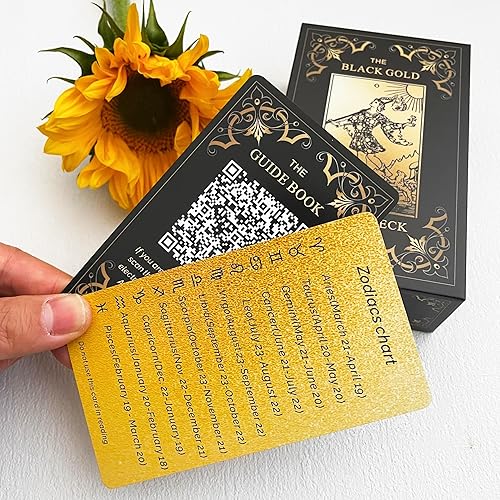 THE
BLACK GOLD
ECK
THE
GUIDE BOOK
If you
scan
elect
Zodiacs chart
♈ Aries(March 21- April 19)
♉ Taurus(April 20 -May 20)
♊ Gemini(May 21-June 20)
♋ Cancer(June 21-July 22)
♌ Leo(July 23- August 22)
♍ Virgo(August 23-September 22)
♎ Libra(September 23-October 22)
♏ Scorpio(October 23-November 21)
♐ Sagittarius(Nov. 22-December 21)
♑ Capricorn(Dec. 22-January 19)
♒ Aquarius(January 20-February 18)
♓ Pisces(February 19 - March 20)
not use this card in reading